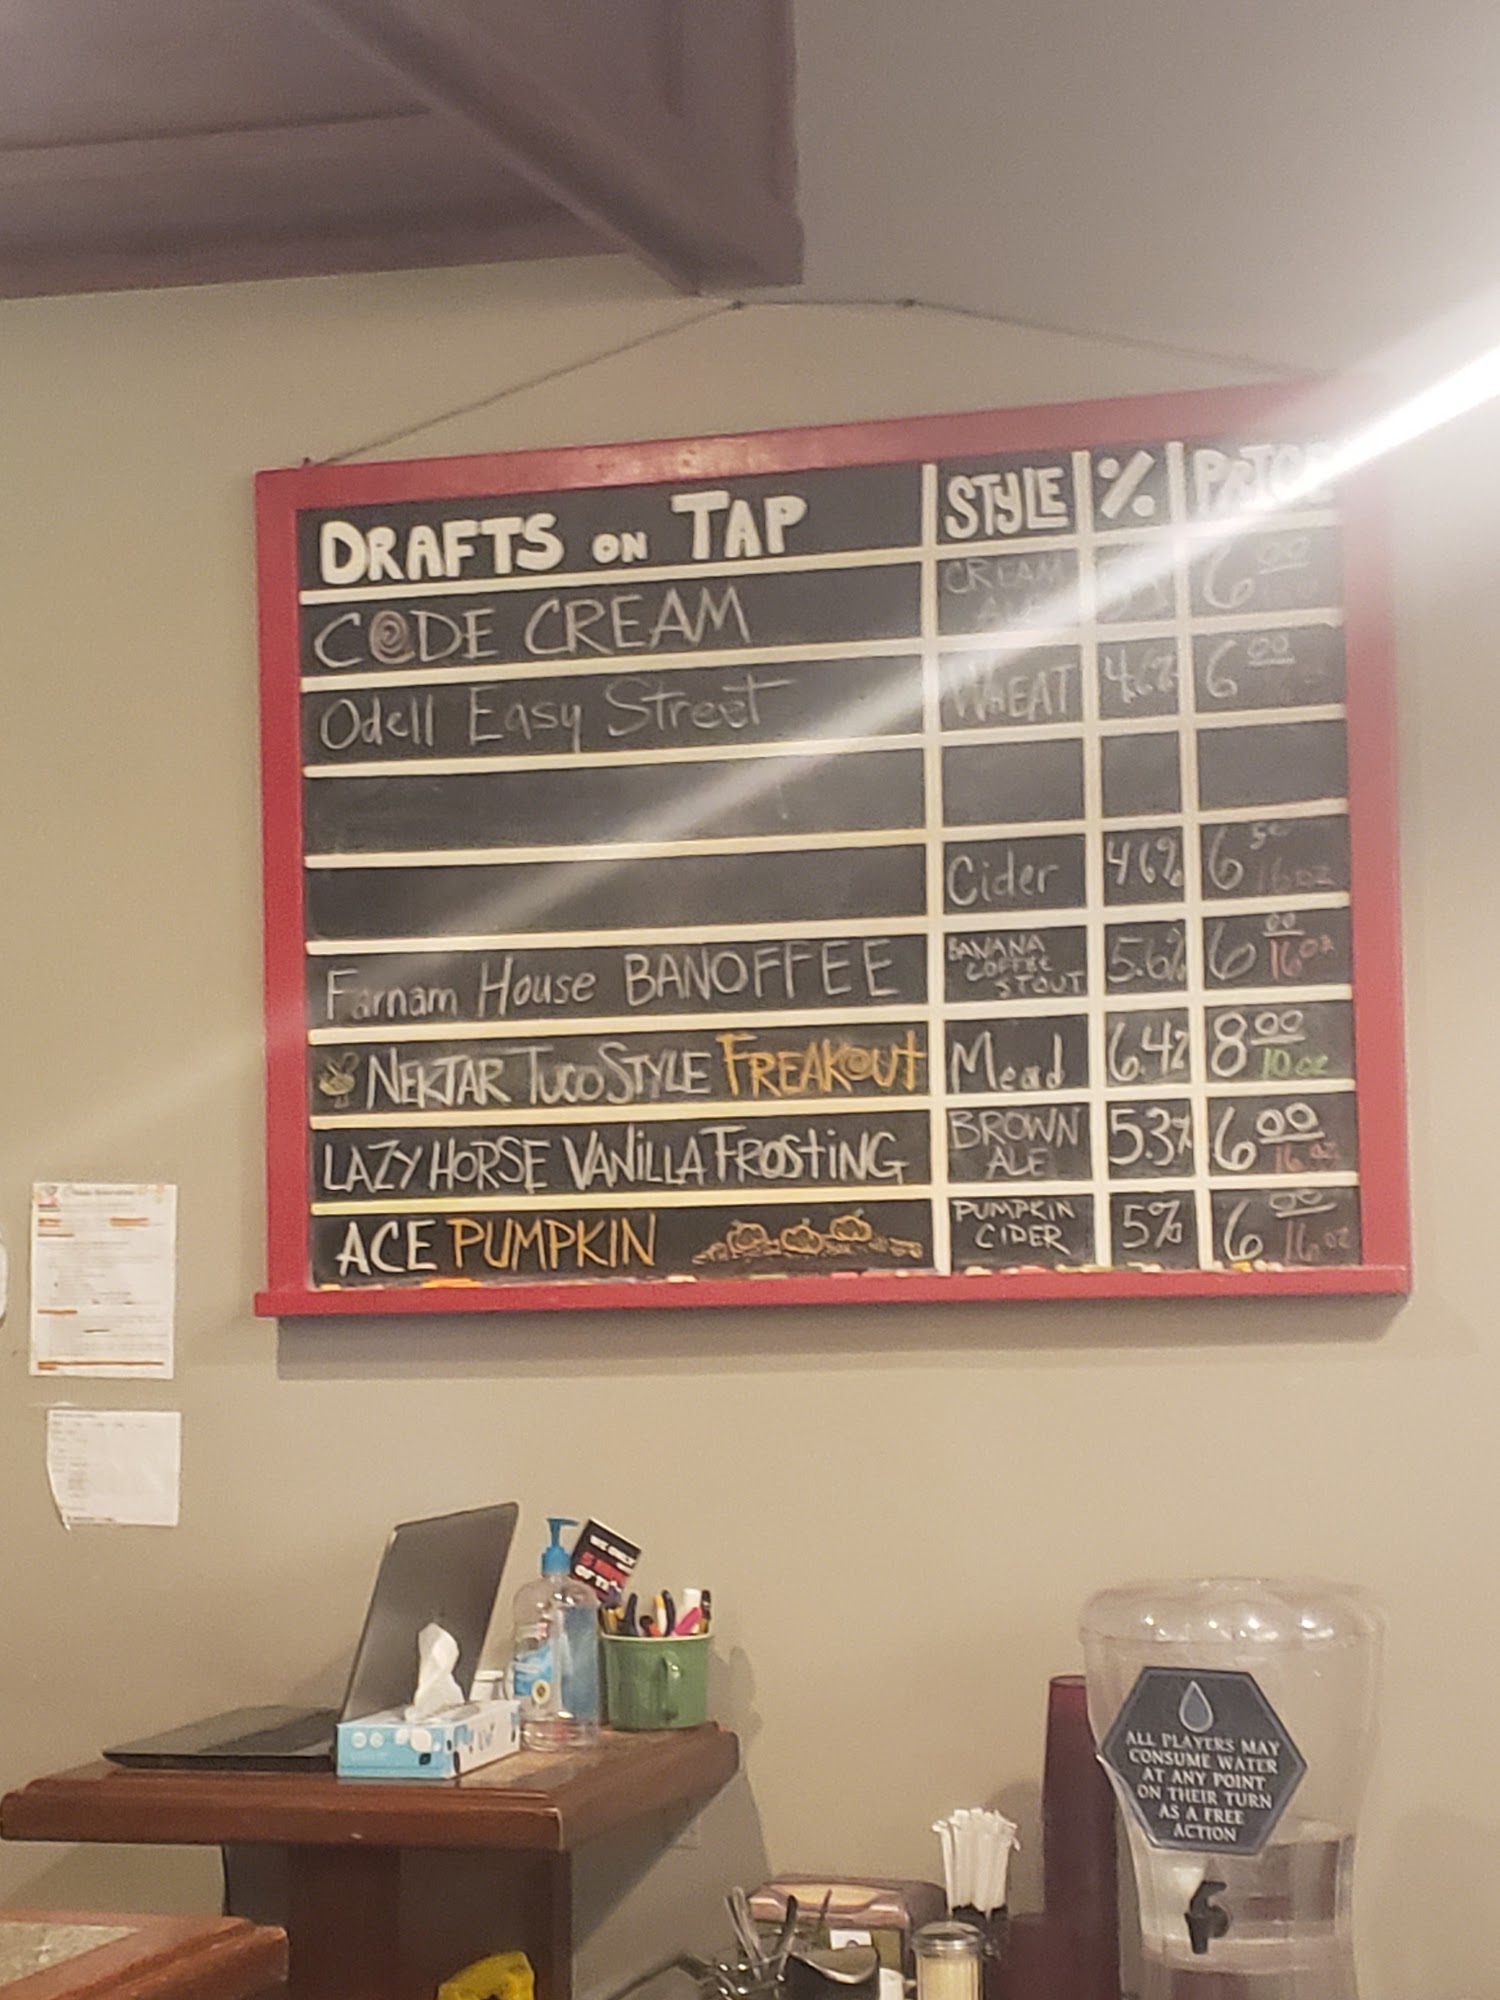 DRAFTS ON TAP STYLE % PRICE
CODE CREAM CREAM ALE 6 00
Odell Easy Street WHEAT 4.6% 6 00
Cider 4.6% 6 50 16 oz
Farnam House BANOFFEE BANANA COFFEE STOUT 5.6% 6 00 16 oz
NEKTAR TUCO STYLE FREAKOUT Mead 6.4% 8 00 10 oz
LAZY HORSE VANILLA FROSTING BROWN ALE 5.3% 6 00 16 oz
ACE PUMPKIN PUMPKIN CIDER 5% 6 00 16 oz
ALL PLAYERS MAY
CONSUME WATER
AT ANY POINT
ON THEIR TURN
AS A FREE
ACTION